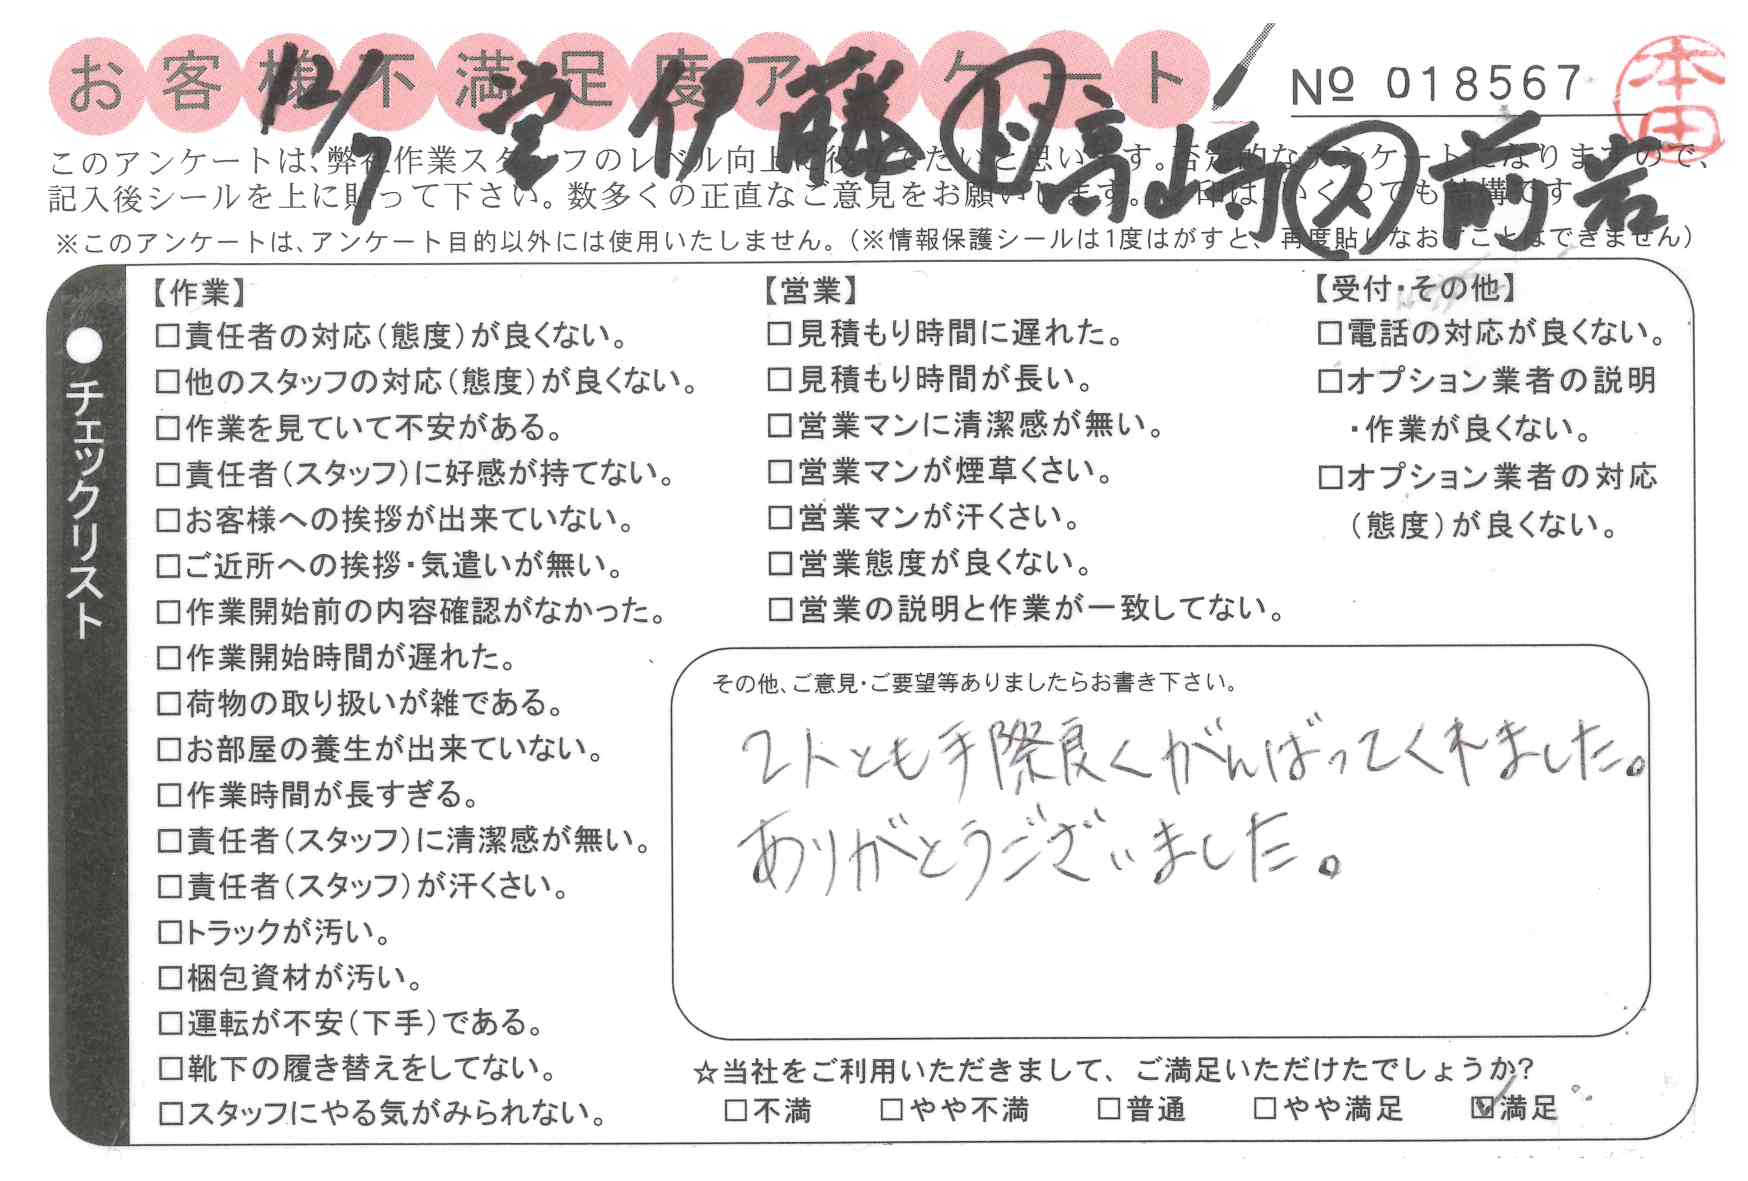 お客様不満足度アンケート
№ 018567
本田
12/7 営 伊藤 高崎 ス 前岩
このアンケートは、弊社作業スタッフのレベル向上に役立てたいと思います。否定的なアンケートになりますので、
記入後シールを上に貼って下さい。数多くの正直なご意見をお願いします。 印は、いくつでも結構です
※このアンケートは、アンケート目的以外には使用いたしません。(※情報保護シールは1度はがすと、再度貼りなおすことはできません)
●チェックリスト
【作業】
□責任者の対応(態度)が良くない。
□他のスタッフの対応(態度)が良くない。
□作業を見ていて不安がある。
□責任者(スタッフ)に好感が持てない。
□お客様への挨拶が出来ていない。
□ご近所への挨拶・気遣いが無い。
□作業開始前の内容確認がなかった。
□作業開始時間が遅れた。
□荷物の取り扱いが雑である。
□お部屋の養生が出来ていない。
□作業時間が長すぎる。
□責任者(スタッフ)に清潔感が無い。
□責任者(スタッフ)が汗くさい。
□トラックが汚い。
□梱包資材が汚い。
□運転が不安(下手)である。
□靴下の履き替えをしてない。
□スタッフにやる気がみられない。
【営業】
□見積もり時間に遅れた。
□見積もり時間が長い。
□営業マンに清潔感が無い。
□営業マンが煙草くさい。
□営業マンが汗くさい。
□営業態度が良くない。
□営業の説明と作業が一致してない。
【受付・その他】
□電話の対応が良くない。
□オプション業者の説明
・作業が良くない。
□オプション業者の対応
(態度)が良くない。
その他、ご意見・ご要望等ありましたらお書き下さい。
2人とも手際良くがんばってくれました。
ありがとうございました。
☆当社をご利用いただきまして、ご満足いただけたでしょうか?
□不満 □やや不満 □普通 □やや満足 ☑満足